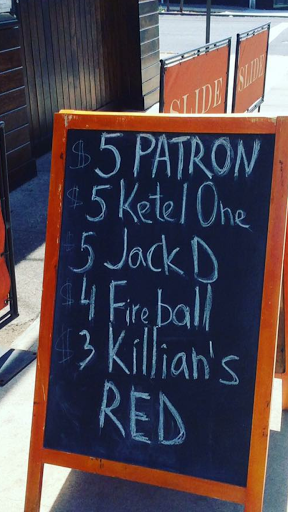 SLIDE
SLIDE
$5 PATRON
$5 Ketel One
$5 Jack D
$4 Fireball
$3 Killian's
RED